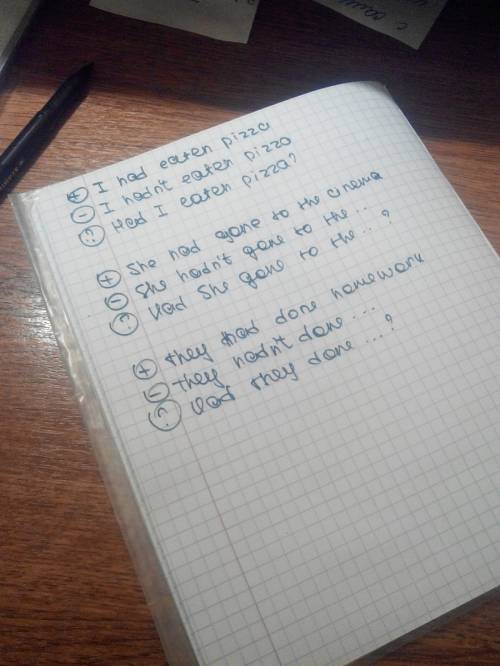 + I had eaten pizza
- I hadn't eaten pizza
? Had I eaten pizza?
+ She had gone to the cinema
- She hadn't gone to the ...
? Had she gone to the ... ?
+ They had done homework
- They hadn't done ...
? Had they done ... ?